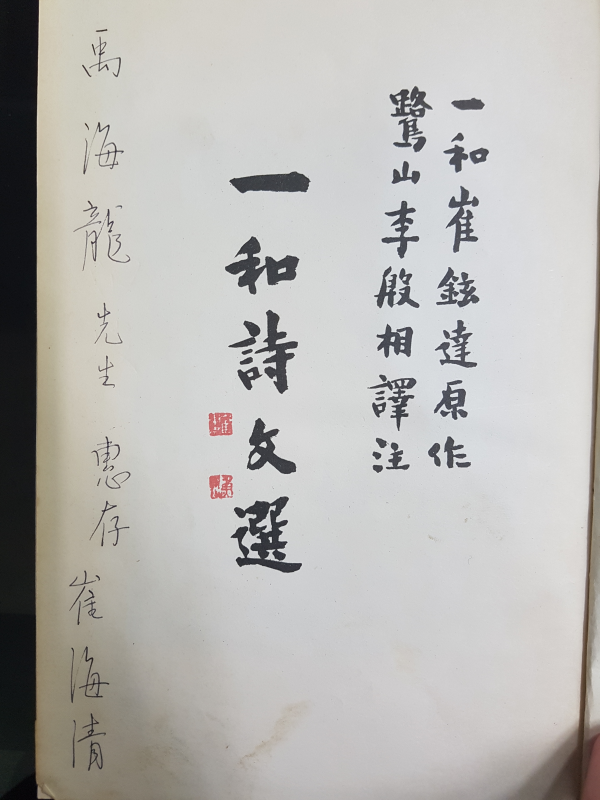 一和崔鉉達原作
鷺山李殷相譯注
一和詩文選
禹海龍先生惠存崔海淸